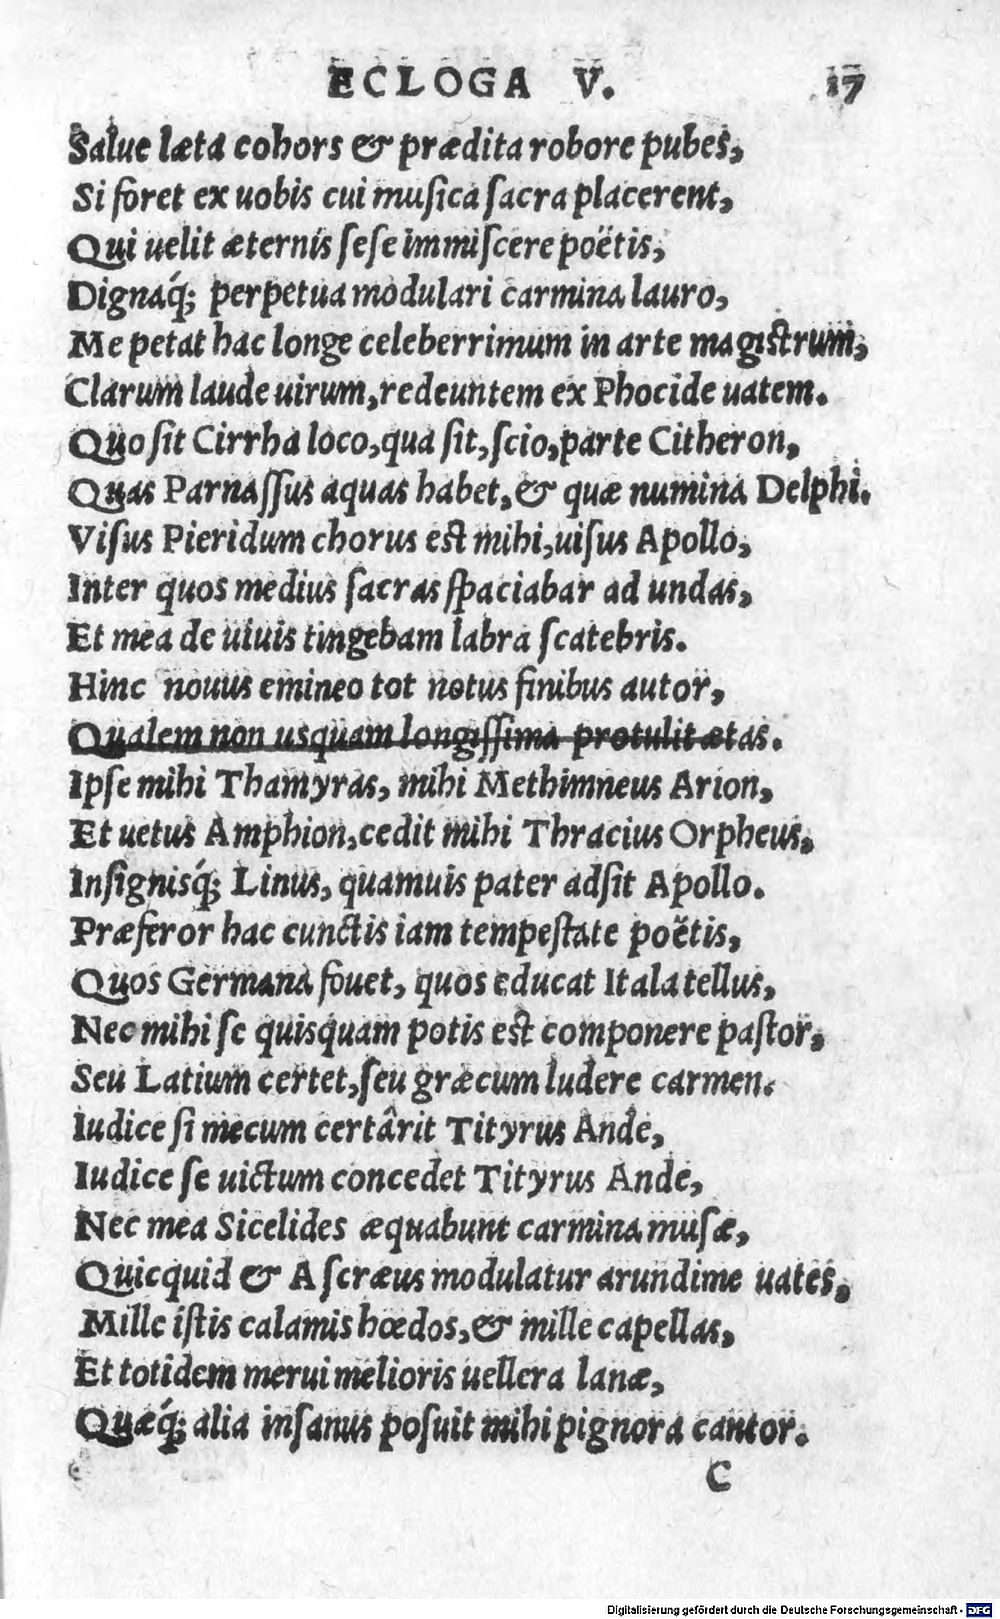 ECLOGA V. 17
Salue læta cohors & prædita robore pubes,
Si foret ex uobis cui muſica ſacra placerent,
Qui uelit æternis ſeſe immiſcere poëtis,
Dignáq; perpetua modulari carmina lauro,
Me petat hac longe celeberrimum in arte magiſtrum,
Clarum laude uirum, redeuntem ex Phocide uatem.
Quo ſit Cirrha loco, qua ſit, ſcio, parte Citheron,
Quas Parnaſſus aquas habet, & quæ numina Delphi.
Viſus Pieridum chorus eſt mihi, uiſus Apollo,
Inter quos medius ſacras ſpaciabar ad undas,
Et mea de uiuis tingebam labra ſcatebris.
Hinc nouus emineo tot notus finibus autor,
Qualem non usquam longiſſima protulit ætas.
Ipſe mihi Thamyras, mihi Methimneus Arion,
Et uetus Amphion, cedit mihi Thracius Orpheus,
Inſignisq́; Linus, quamuis pater adſit Apollo.
Præferor hac cunctis iam tempeſtate poëtis,
Quos Germana fouet, quos educat Itala tellus,
Nec mihi ſe quisquam potis eſt componere paſtor,
Seu Latium certet, ſeu græcum ludere carmen.
Iudice ſi mecum certârit Tityrus Ande,
Iudice ſe uictum concedet Tityrus Ande,
Nec mea Sicelides æquabunt carmina muſæ,
Quicquid & Aſcræus modulatur arundime uates,
Mille iſtis calamis hœdos, & mille capellas,
Et totidem merui melioris uellera lanæ,
Quæq́; alia inſanus poſuit mihi pignora cantor.
C
Digitalisierung gefördert durch die Deutsche Forschungsgemeinschaft - DFG